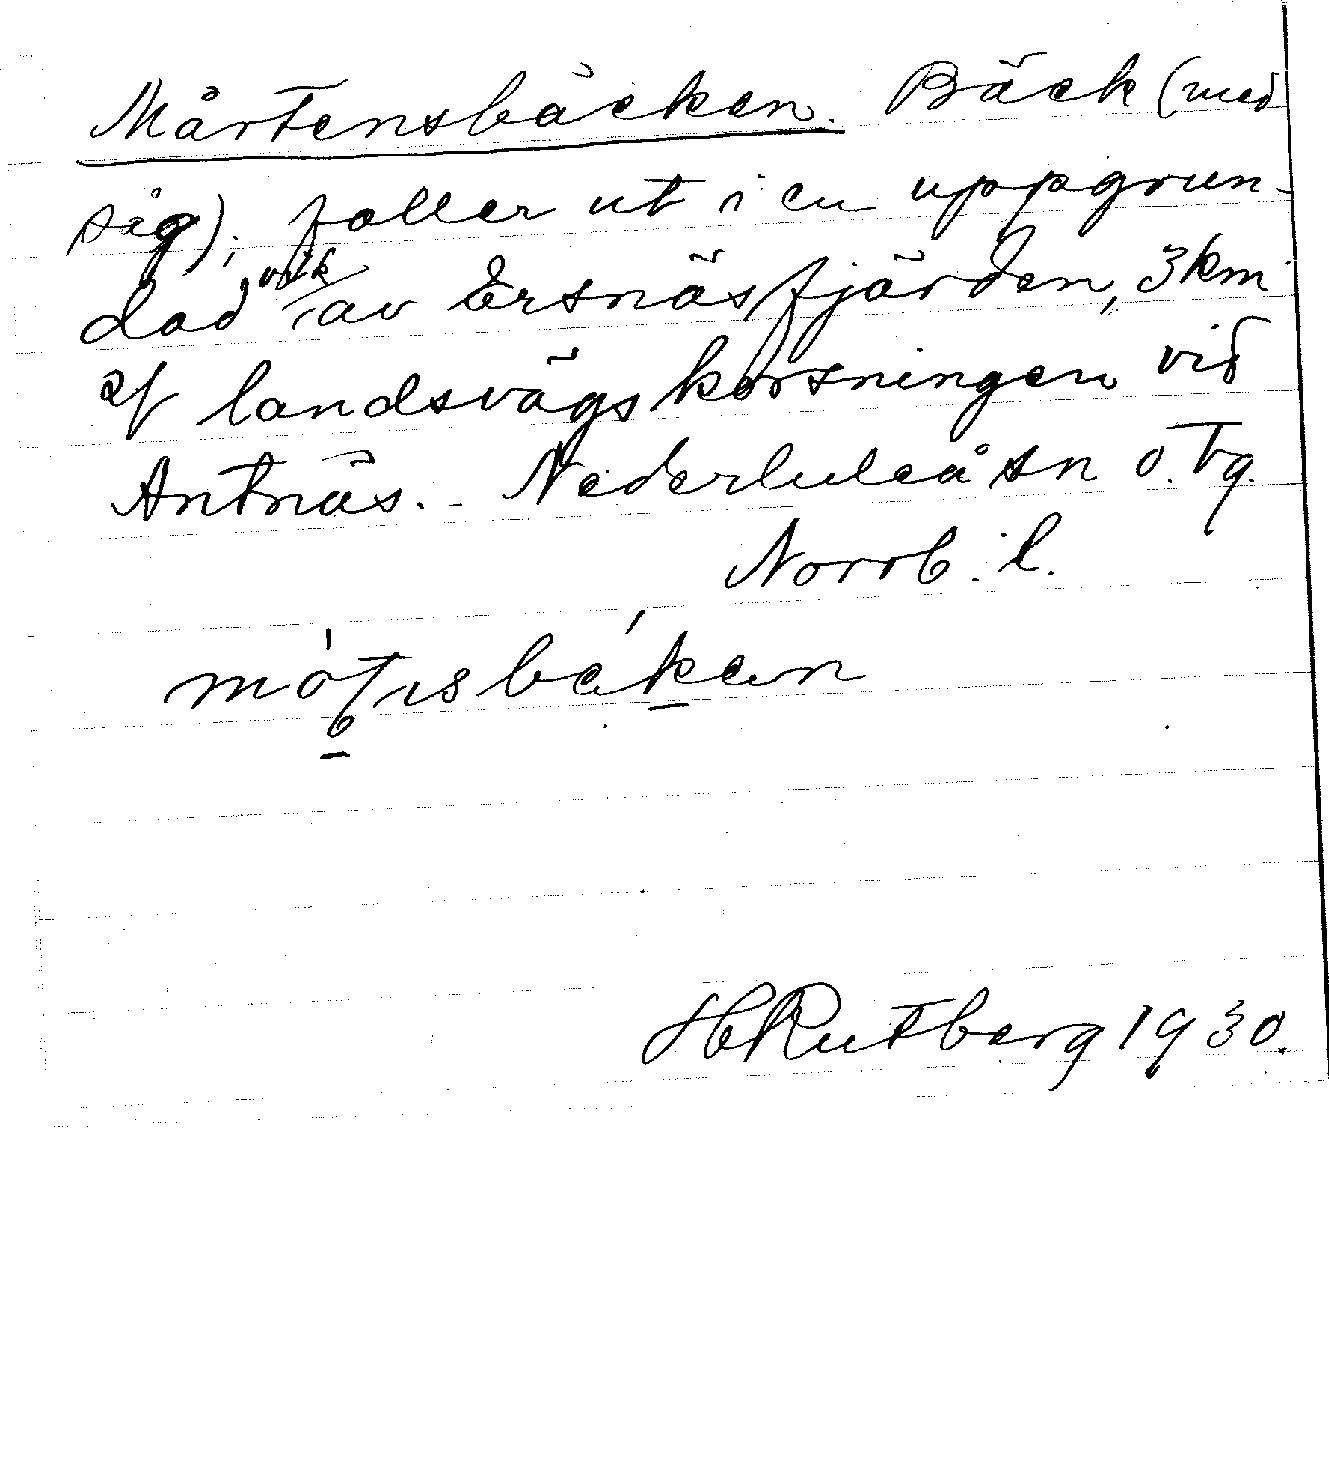 Mårtensbäcken. Bäck (med
sig); faller ut i en uppgrun-
dad vik av Ersnäsfjärden, 3 km
landsvägskorsningen vid
Antnäs. - Nederluleå sn o. tg.
Norrb. l.
HRutberg 1930.